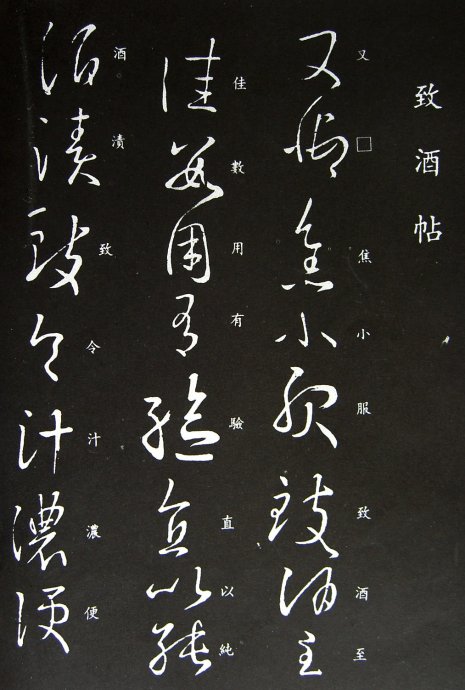 致酒帖
又□焦小服致酒至
佳數用有驗直以純
酒漬致令汁濃便